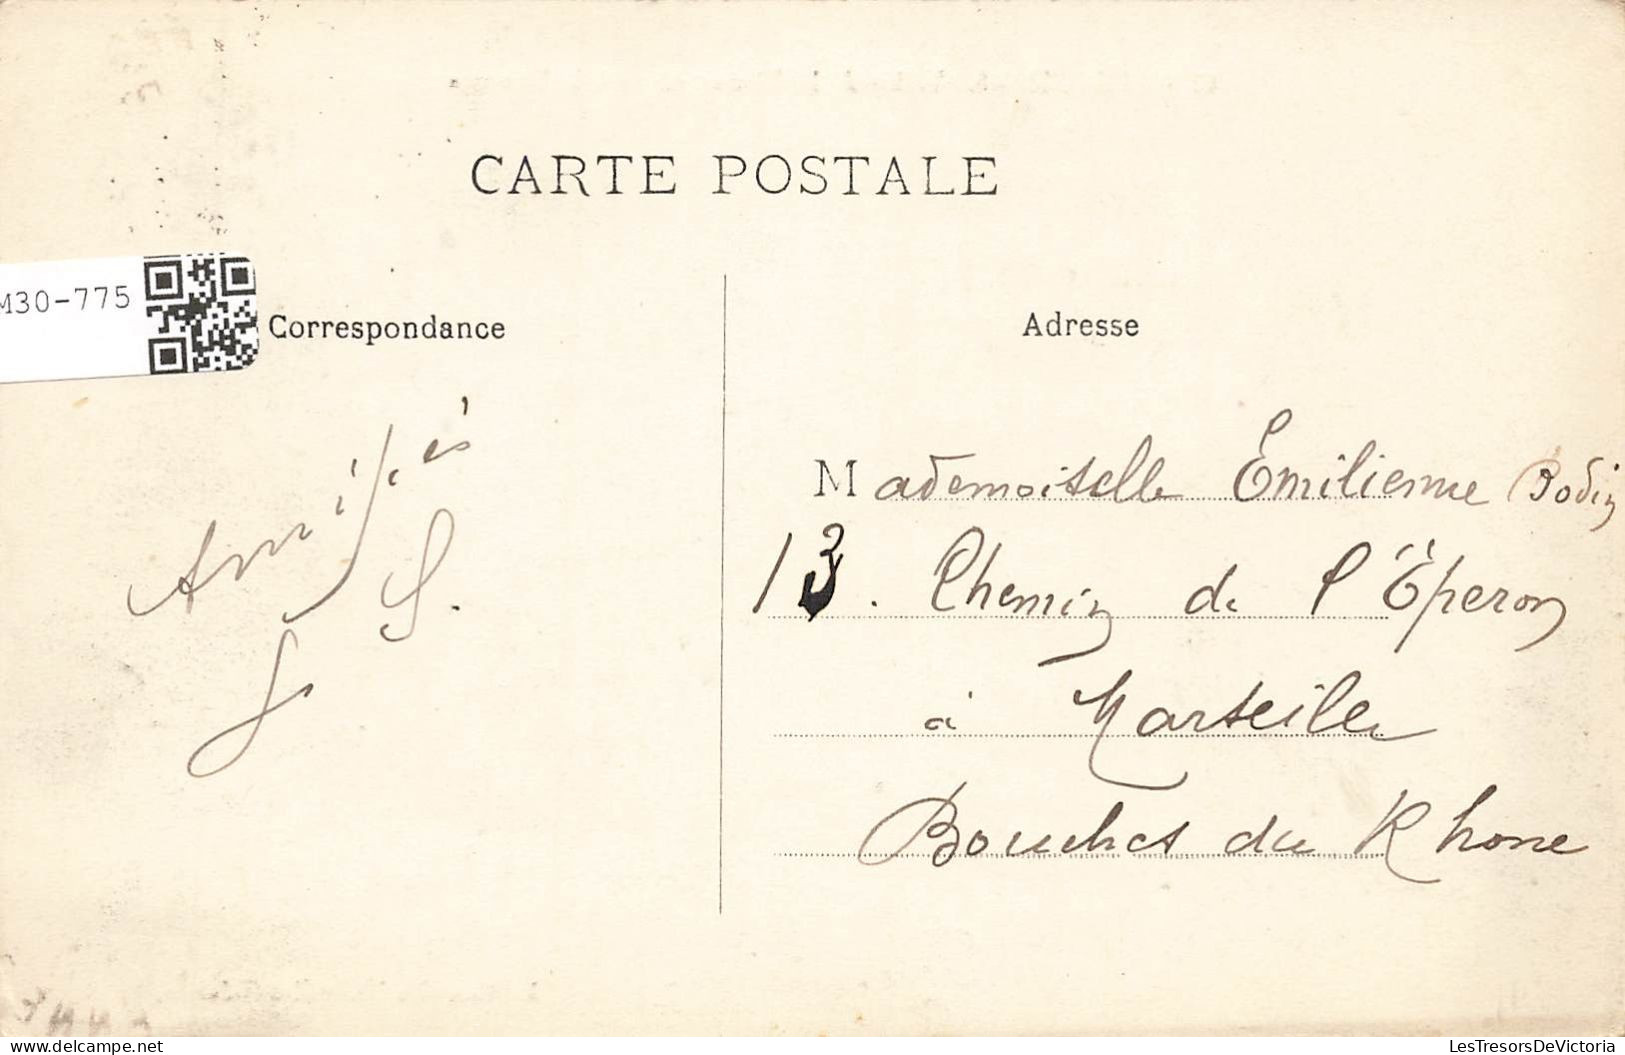 CARTE POSTALE
M30-775
Correspondance
Amitiés
Adresse
Mademoiselle Emilienne Bodin
13. Chemin de l'Éperon
à Marseille
Bouches du Rhone
Delcampe.net
LesTresorsDeVictoria